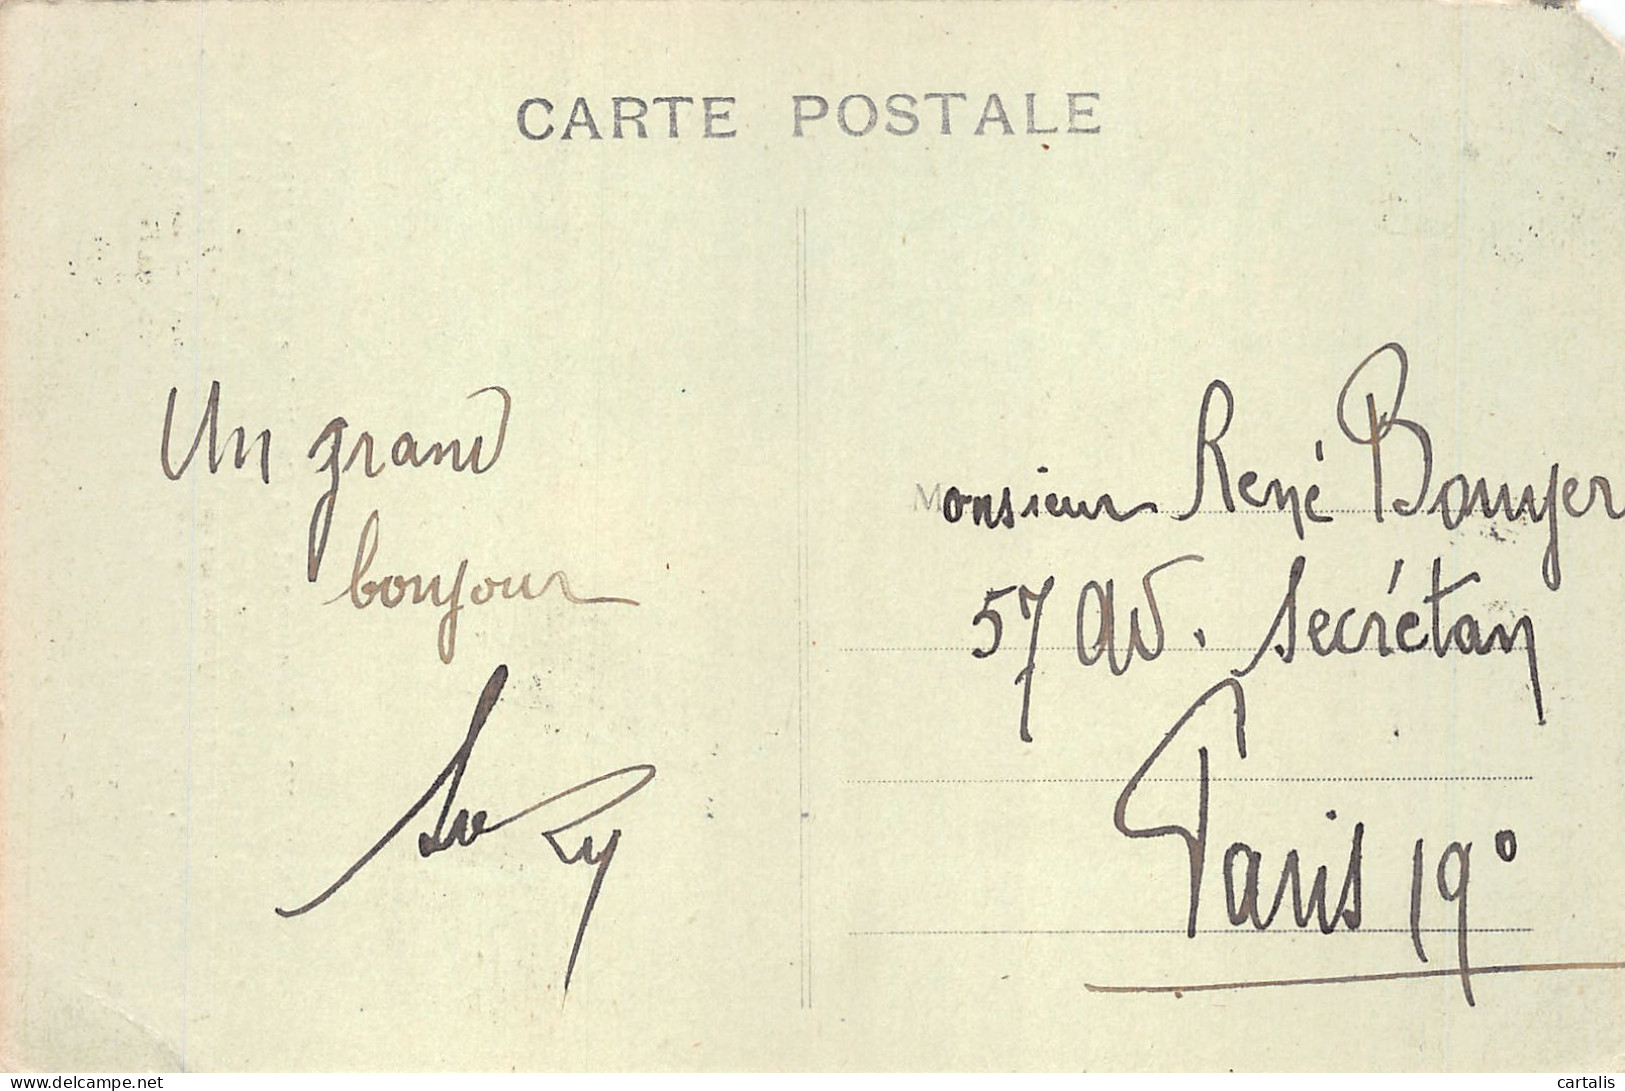 CARTE POSTALE
Un grand
bonjour
Suzy
Monsieur René Bouyer
57 av. Secrétan
Paris 19°
www.delcampe.net
cartalis